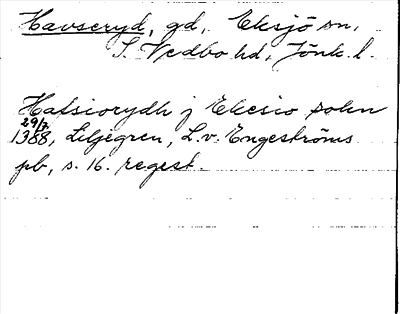 Havseryd, gd, Eksjö sn,
S. Vedbo hd, Jönk. l.
Hafsiorydh j Ekesio sokn
29/7 1388, Liljegren, L. v. Engeströms
pb, s. 16. regest.